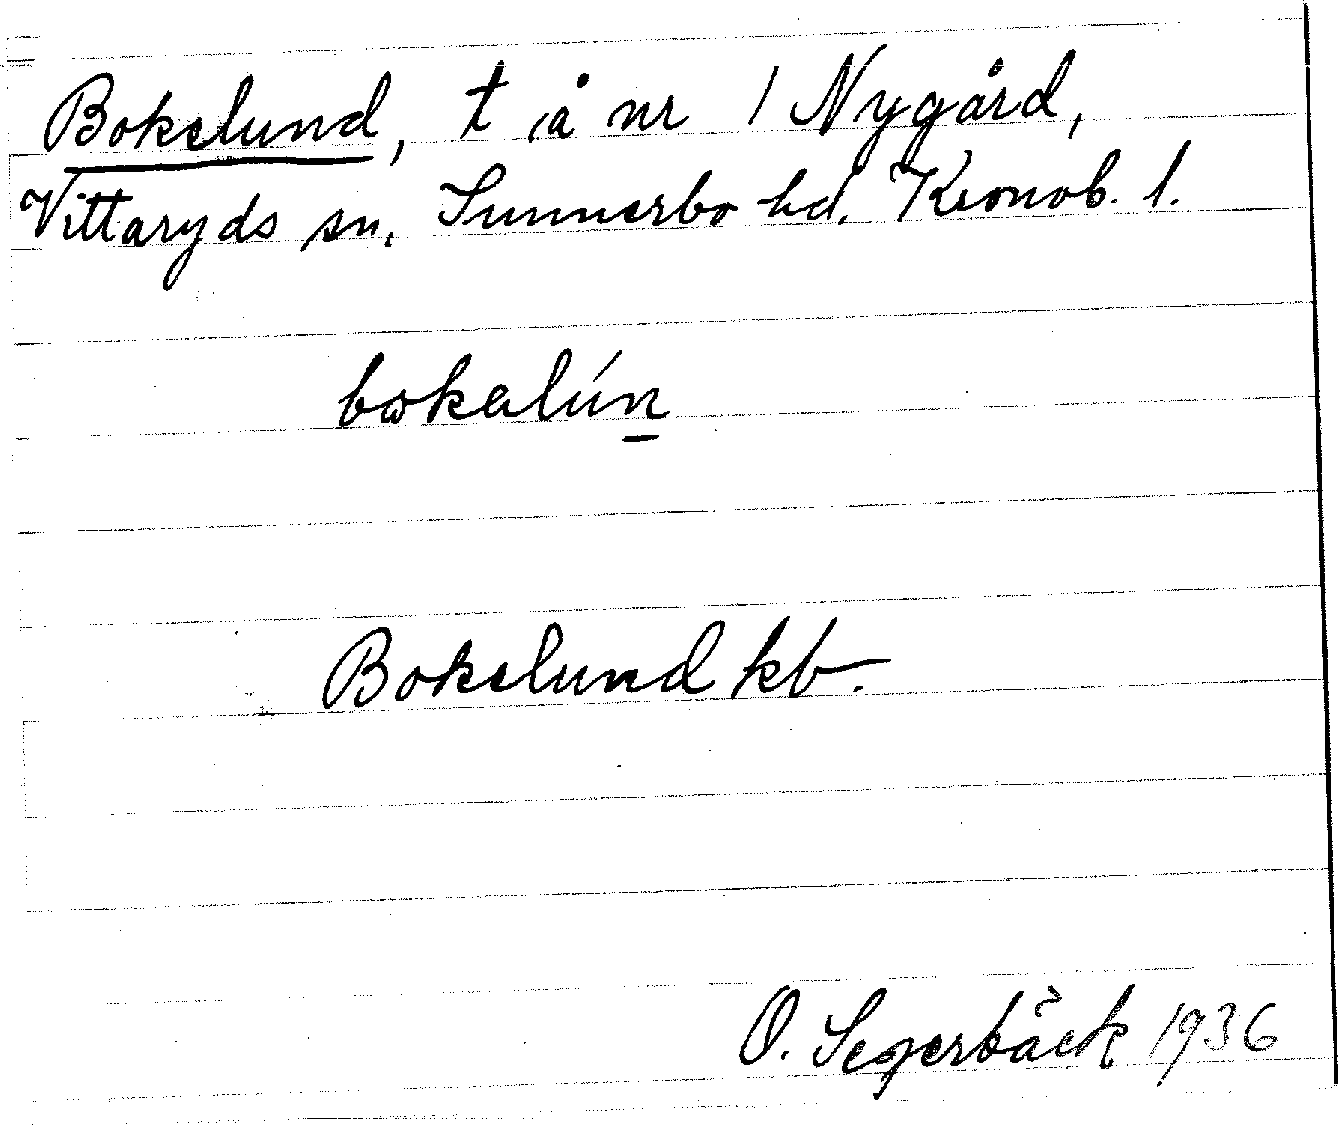 Bokelund, t å nr 1 Nygård,
Vittaryds sn, Sunnerbo hd. Kronob. l.
bokalún
Bokelund kb.
O. Segerbäck 1936